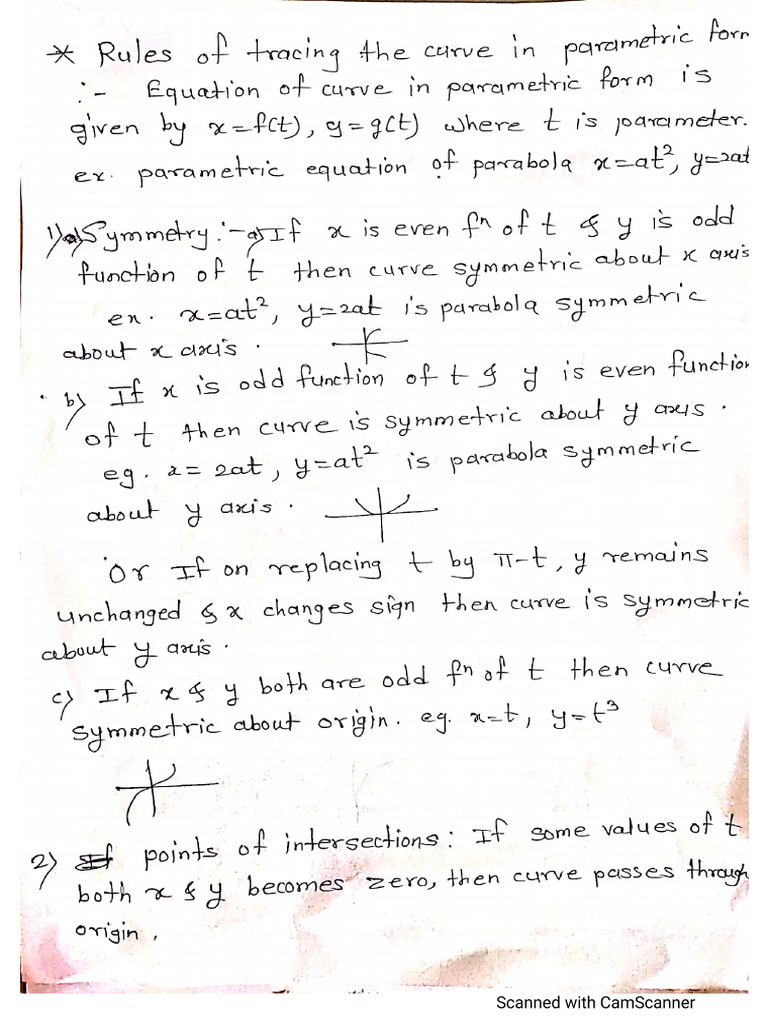 * Rules of tracing the curve in parametric form
:- Equation of curve in parametric form is
given by x=f(t), y=g(t) where t is parameter.
ex. parametric equation of parabola x=at², y=2at
1) Symmetry:- a) If x is even fⁿ of t & y is odd
function of t then curve symmetric about x axis
ex. x=at², y=2at is parabola symmetric
about x axis.
b) If x is odd function of t & y is even function
of t then curve is symmetric about y axis.
eg. x= 2at, y=at² is parabola symmetric
about y axis.
Or If on replacing t by π-t, y remains
unchanged & x changes sign then curve is symmetric
about y axis.
c) If x & y both are odd fⁿ of t then curve
symmetric about origin. eg. x=t, y=t³
2) points of intersections: If some values of t
both x & y becomes zero, then curve passes through
origin.
Scanned with CamScanner